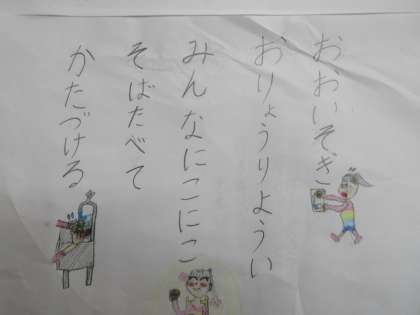 おおいそぎ
おりょうりようい
みんなにこにこ
そばたべて
かたづける